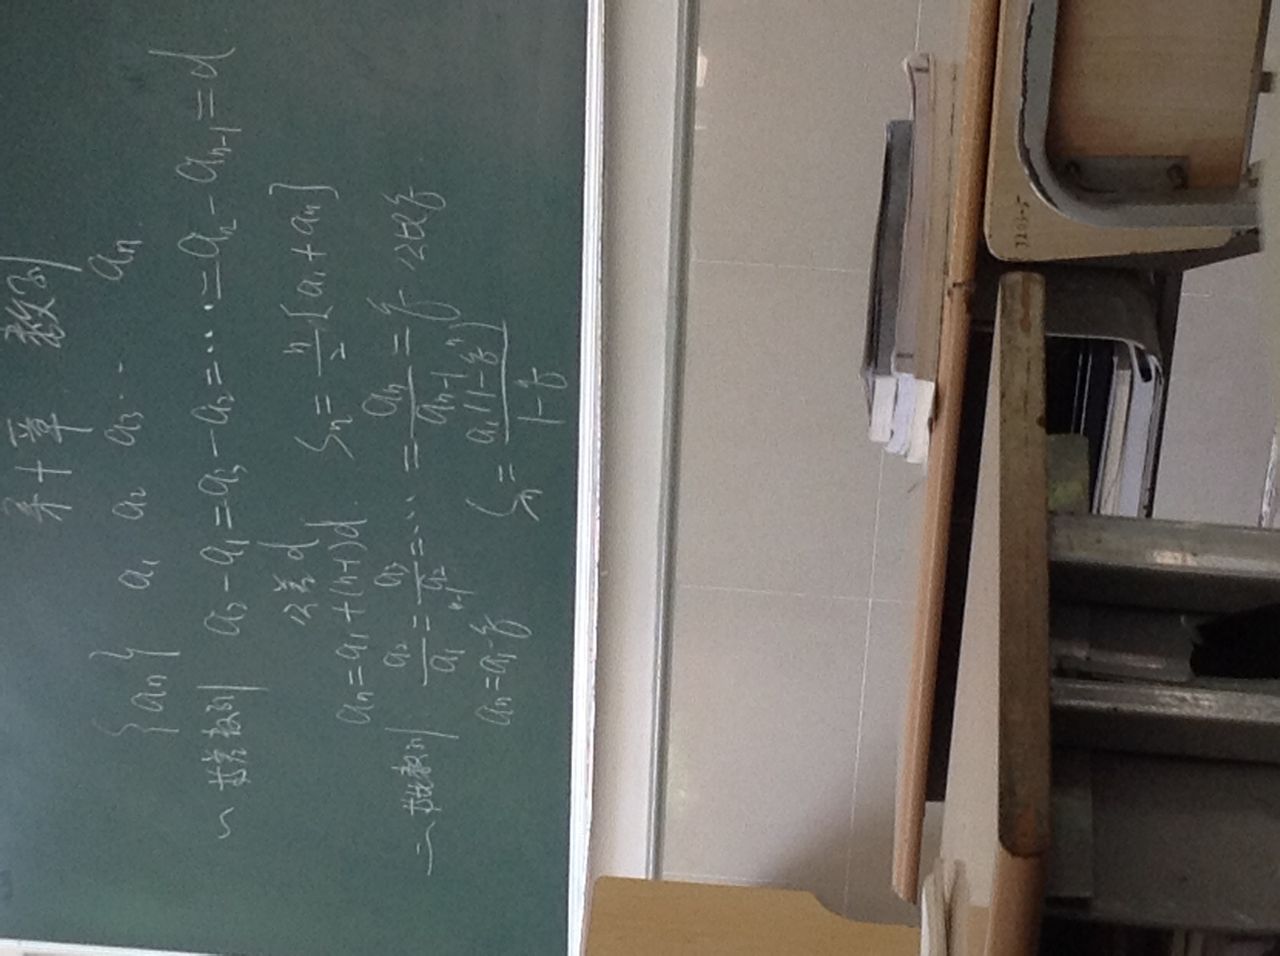 第十章 数列
{an} a1 a2 a3 ... an
一 等差数列 a2-a1=a3-a2=...=an-an-1=d
公差d
an=a1+(n-1)d Sn=n/2[a1+an]
二 等比数列 a2/a1=a3/a2=...=an/an-1=q 公比q
an=a1q^n-1 Sn=a1(1-q^n)/1-q